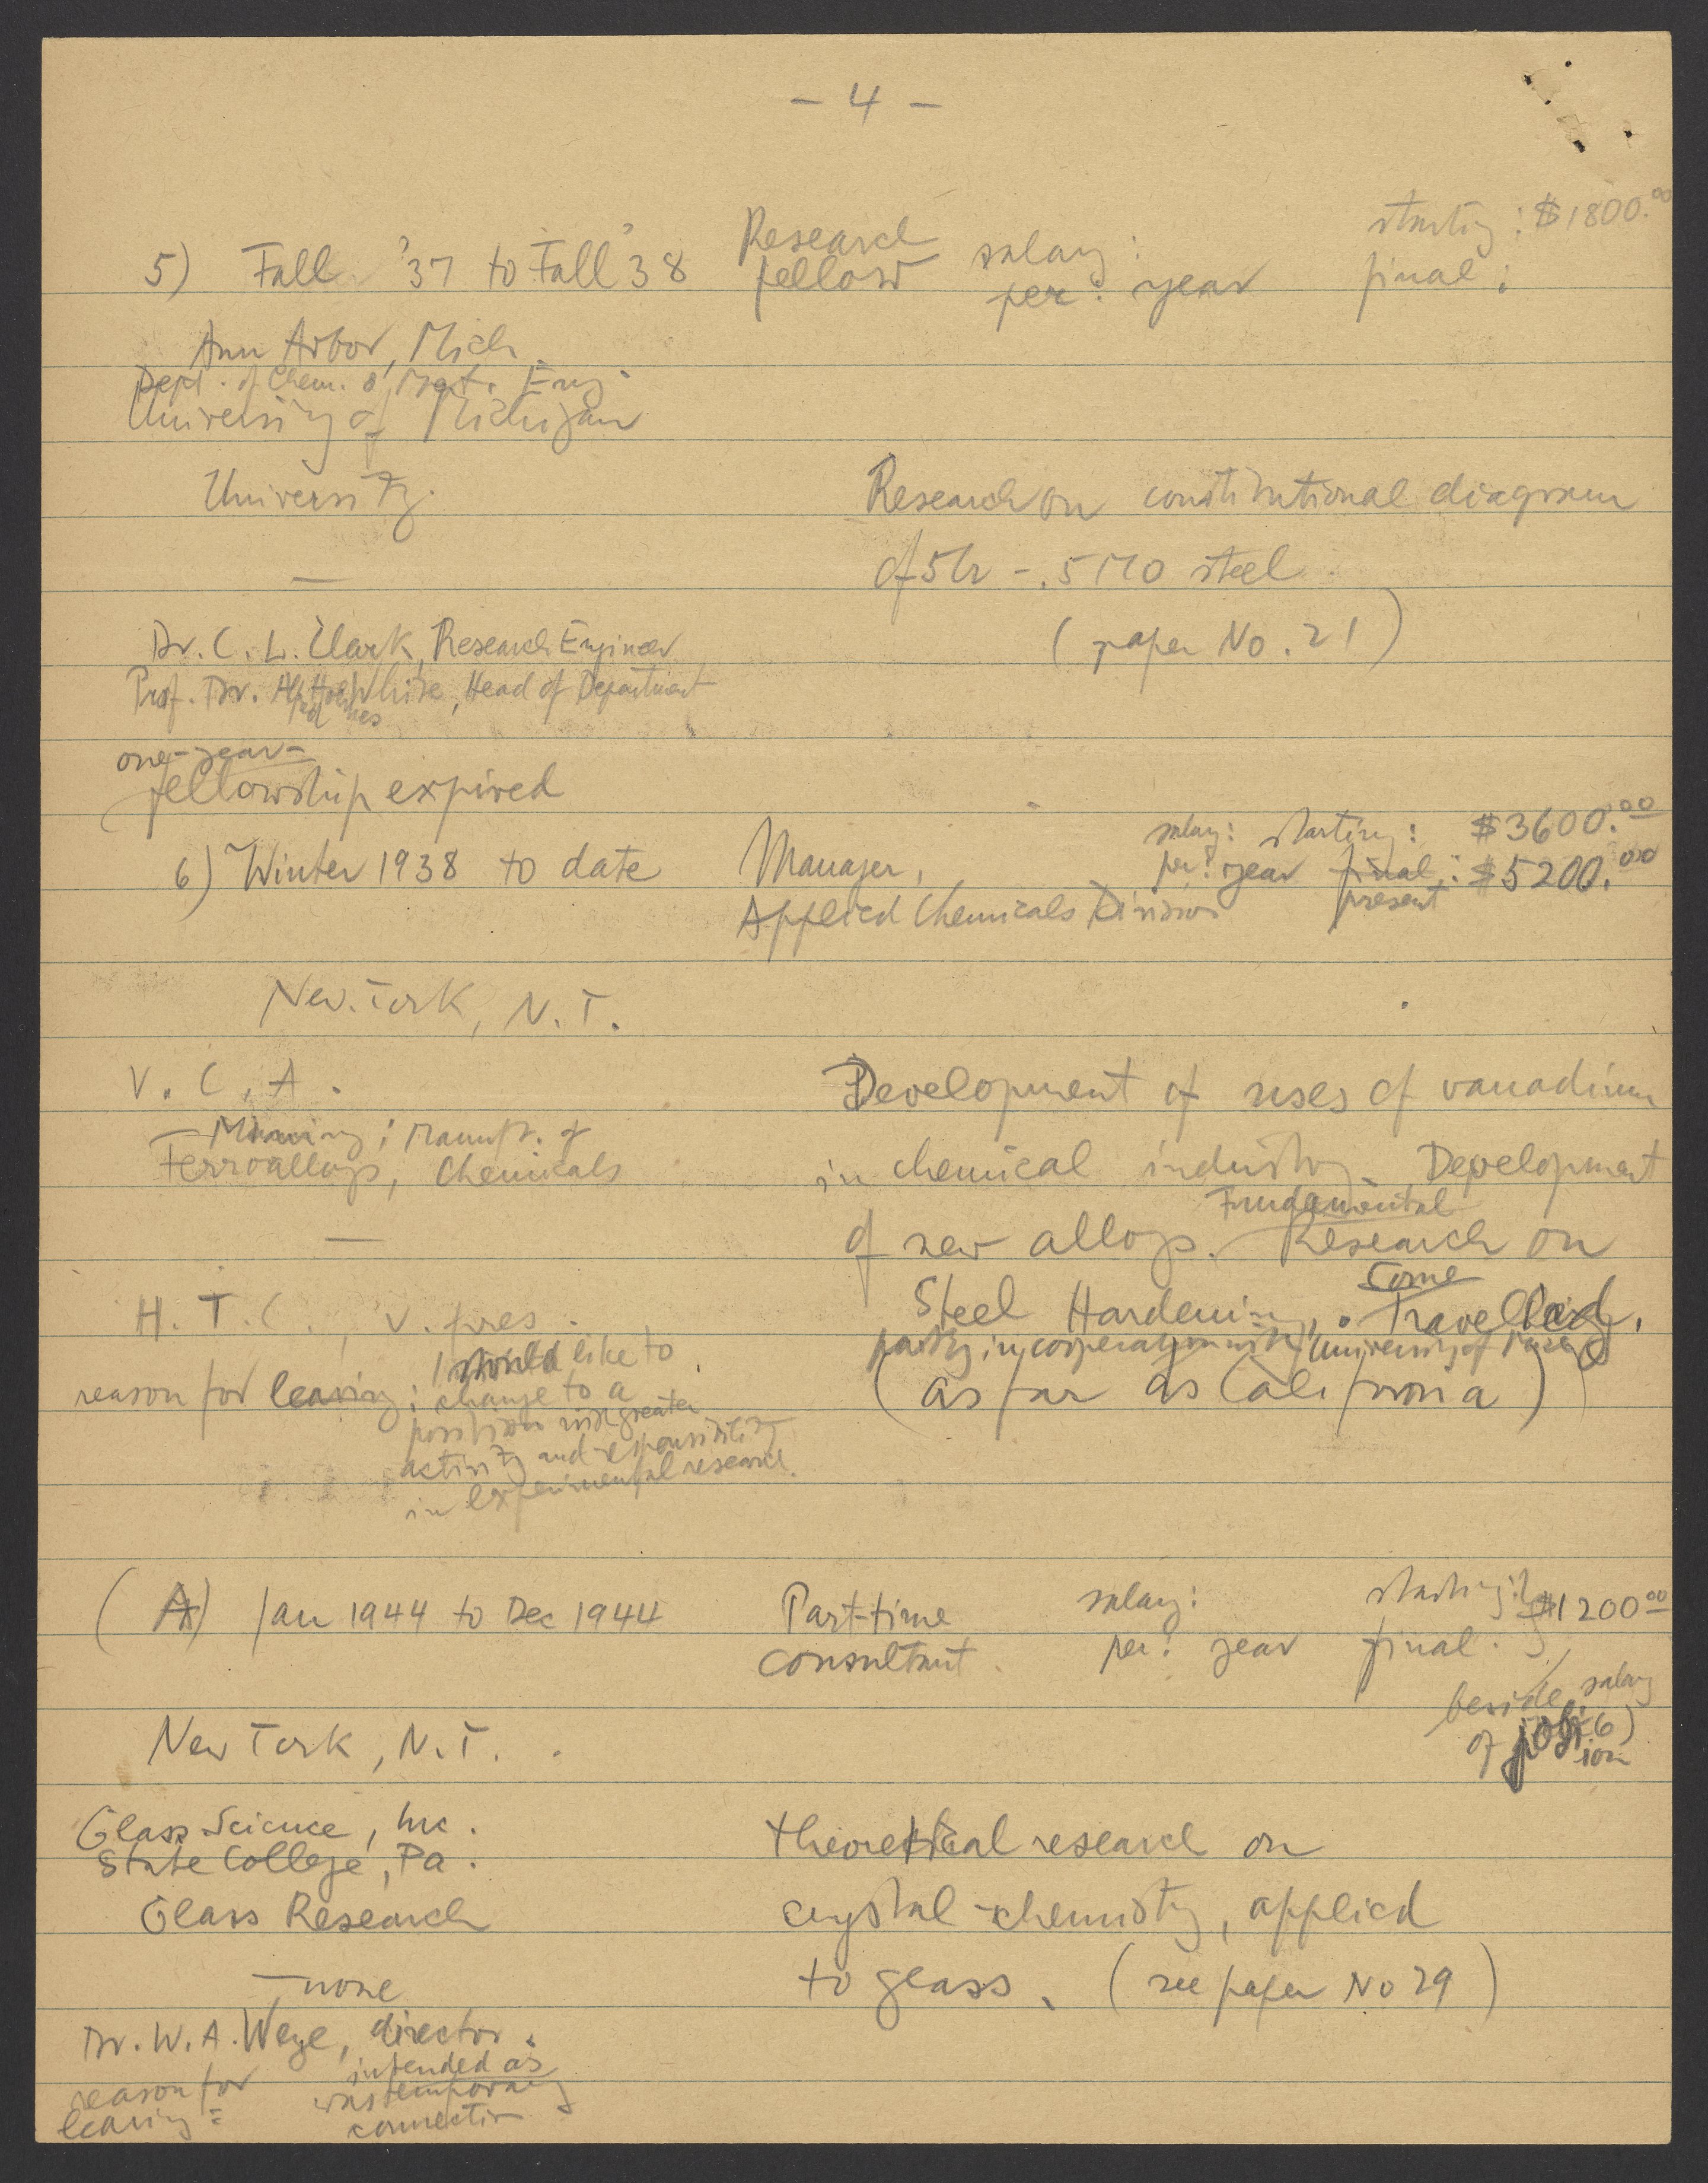 - 4 -
5) Fall '37 to Fall '38 Research fellow salary: per: year starting: $1800.00 final:
Ann Arbor, Mich.
Dept. of Chem. & Met. Eng.
University of Michigan
University.
Research on constitutional diagram
of 5Cr - .5 MO steel
—
(paper No. 21)
Dr. C. L. Clark, Research Engineer
Prof. Dr. White, Head of Department
one-year-
fellowship expired
6) Winter 1938 to date Manager, Applied Chemicals Division
salary: starting: $3600.00
per: year final: $5200.00
present
New York, N.Y.
V. C. A.
— Mining; Manuf. of
Ferroalloys, Chemicals
—
Development of uses of vanadium
in chemical industry. Development
of new alloys. Fundamental Research on
Steel Hardening. Some Travelling.
partly in cooperation with University of
(as far as California)
H. T. C., V. pres.
reason for leaving: I would like to
change to a
position with greater
activity and responsibility
in experimental research.
(A) Jan 1944 to Dec 1944 Part-time consultant.
salary: starting: } $1200.00
per: year final. }
beside salary
of position 6)
New York, N.Y.
Glass Science, Inc.
State College, Pa.
Glass Research
— none
theoretical research on
crystal-chemistry, applied
to glass. (see paper No 29)
Dr. W. A. Weyl, director.
reason for
leaving:
intended as
was temporary
connection